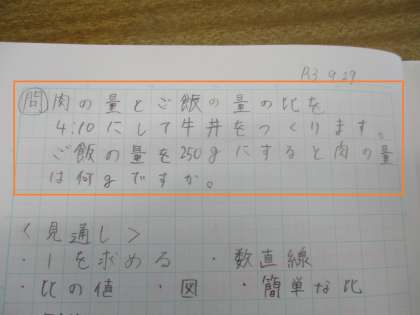 R3 9.29
問 肉の量とご飯の量の比を
4:10にして牛丼をつくります。
ご飯の量を250gにすると肉の量
は何gですか。
<見通し>
・1を求める ・数直線
・比の値 ・図 ・簡単な比